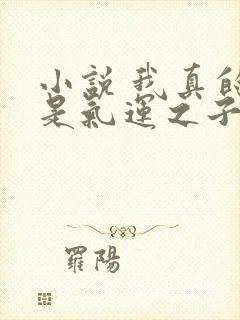 小說我真的
是氣運之子
羅陽